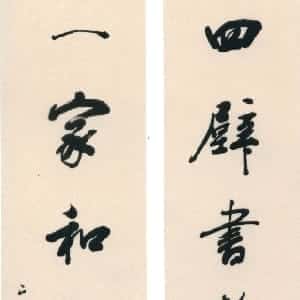 四壁書
一家和